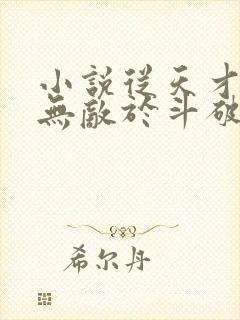 小說從天才
無敵於斗破
希尔丹